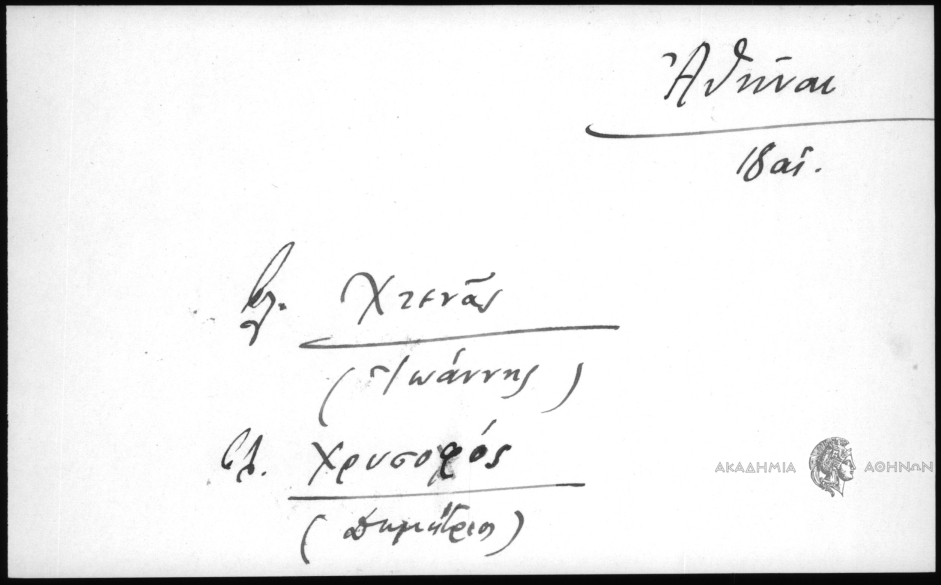 Ἀθῆναι
18 αἰ.
βλ. Χτενᾶς
(Ἰωάννης)
βλ. Χρυσοφός
(Δημήτριος)
ΑΚΑΔΗΜΙΑ ΑΘΗΝΩΝ